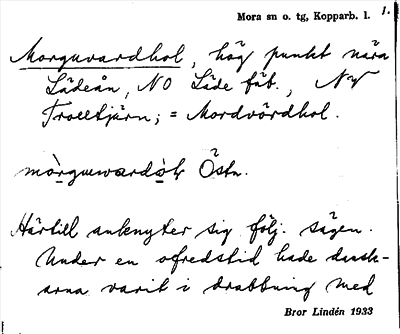 Mora sn o. tg, Kopparb. l. 1.
Morguvardhol, hög punkt nära
Lädeån, NO Läde fäb., NV
Trolltjärn; = Mordvördhol.
Östn.
Härtill anknyter sig följ. sägen.
Under en ofredstid hade dansk-
arna varit i drabbning med
Bror Lindén 1933